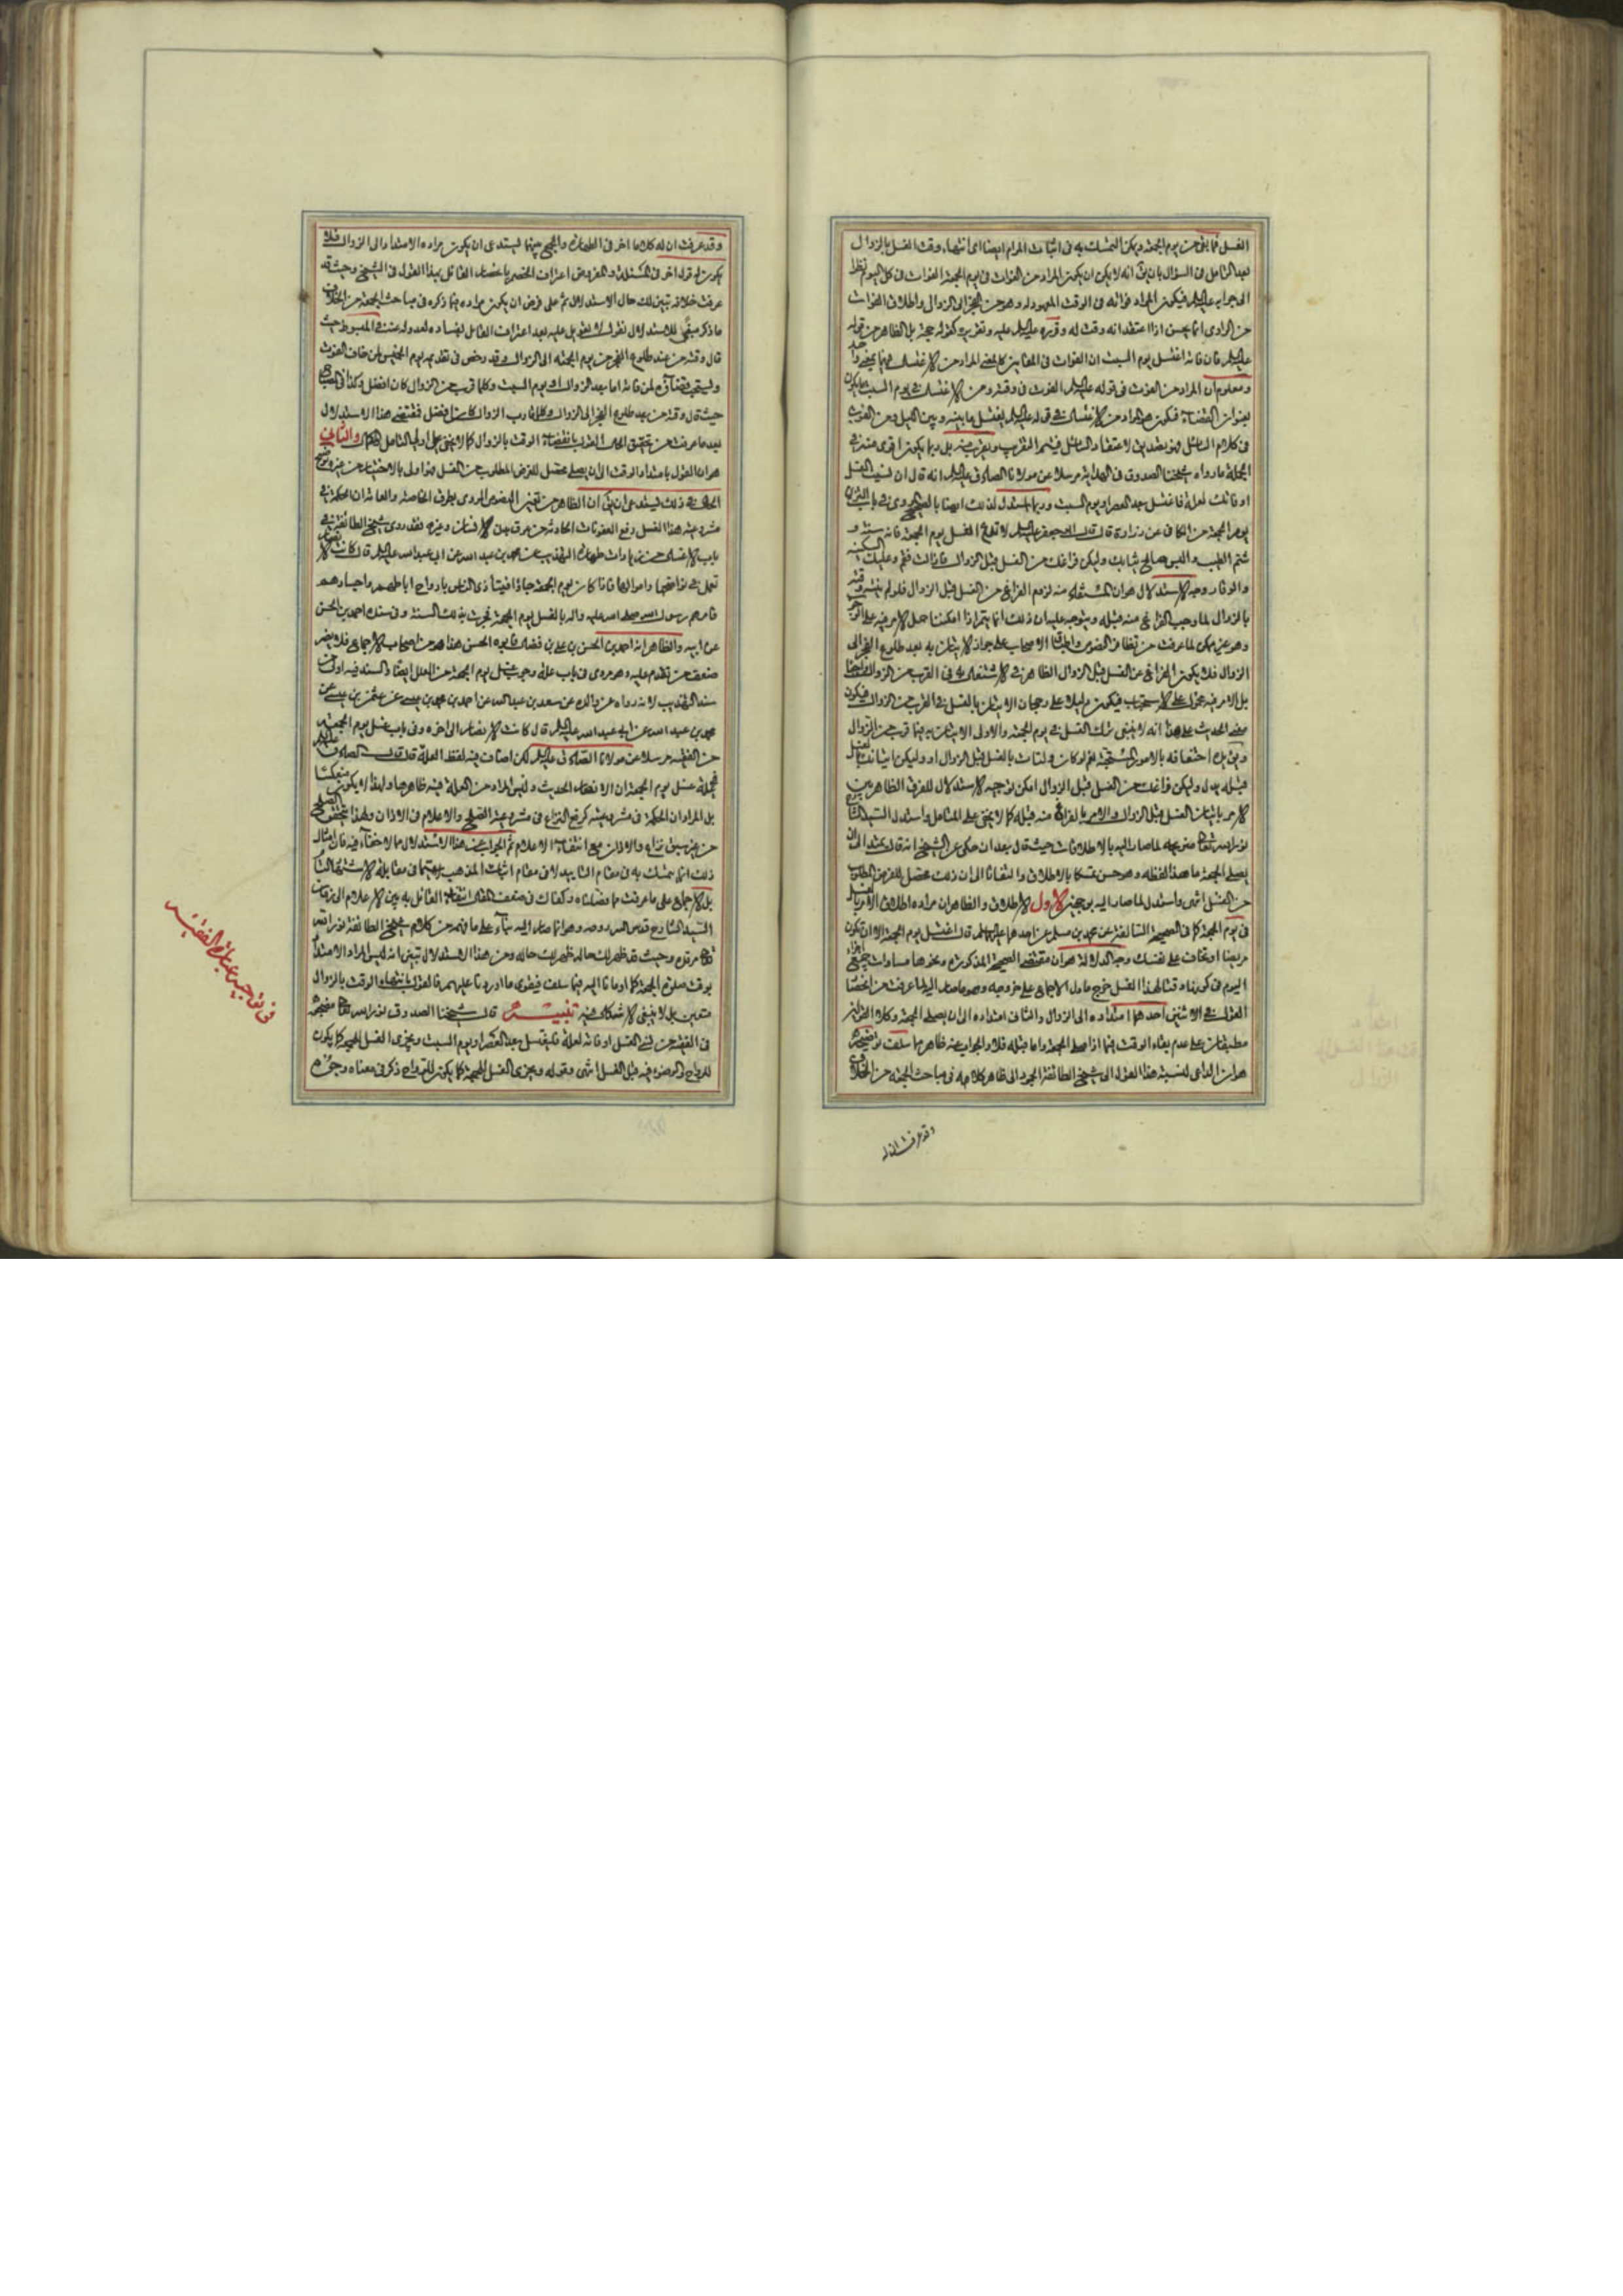 الغسل فما بقى من يوم الجمعة ويمكن التمسك به فى اثبات المرام ايضا اى انتهاء وقت الغسل بالزوال
بعد التامل فى السؤال بان يق انه لا يمكن ان يكون المراد من الفوات فى يوم الجمعة الفوات فى كل اليوم نظرا
الى جوابه عليه السلم فيكون المراد فواته فى الوقت المعهود له وهو من الفجر الى الزوال واطلاق الفوات
من الراوى انما يحسن اذا اعتقد انه وقت له وقرره عليه السلم عليه وتقريره كقوله حجة بل الظاهر من قوله
عليه السلم فان فاته اغتسل يوم السبت ان الفوات فى
ومعلوم ان المراد من الفوت فى قوله عليه السلم الفوت فى وقته ومن الاغتسال فى يوم السبت
بعنوان القضاء فيكون المراد من الاغتسال فى قوله عليه السلم يغتسل ما بينه وبين الليل
الجملة ما رواه شيخنا الصدوق فى الهداية مرسلا عن مولانا الصادق عليه السلم انه قال ان نسيت الغسل
او فاتك لعلة فاغتسل بعد العصر او يوم السبت وربما يستدل لذلك ايضا بالصحيح المروى فى باب التزين
يوم الجمعة من الكافى عن زرارة قال قال ابو جعفر عليه السلم لا تدع الغسل يوم الجمعة فانه سنة و
شم الطيب والبس صالح ثيابك وليكن فراغك من الغسل قبل الزوال فاذا زالت فقم وعليك السكينة
والوقار وجه الاستدلال هو ان المستفاد منه لزوم الفراغ من الغسل قبل الزوال فلو لم ينته وقته
بالزوال لما وجب الفراغ منه قبله ويتوجه عليه ان ذلك انما يتم اذا امكننا حمل الامر فيه على الوجوب
وهو غير ممكن لما عرفت من تظافر النصوص واطباق الاصحاب على جواز الاتيان به بعد طلوع الفجر الى
الزوال فلا يكون الفراغ عن الغسل قبل الزوال
بل الامر فيه محمول على الاستحباب فيكون دليلا على رجحان الاتيان بالغسل فى القرب من الزوال فيكون
معنى الحديث على هذا انه لا ينبغى ترك الغسل فى يوم الجمعة والاولى الاتيان به فيما قرب من الزوال
قبله بدل وليكن فراغك من الغسل قبل الزوال امكن توجيه الاستدلال للفرق الظاهر بين
الامر باتيان الغسل قبل الزوال والامر بالفراغ منه قبله كما لا يخفى على المتامل واستدل السيد الشارح
يصلى الجمعة ما هذا لفظه وهو حسن تمسكا بالاطلاق والتفاتا الى ان ذلك محصل للغرض المطلوب
من الغسل انتهى واستدل لما صار اليه بوجهين الاول الاطلاق والظاهر ان مراده اطلاق الامر بالغسل
فى يوم الجمعة كما فى الصحيحة السالفة عن محمد بن مسلم عن احدهما عليهما السلم قال اغتسل يوم الجمعة الا ان تكون
مريضا او تخاف على نفسك وجه الدلالة هو ان مقتضى الصحيحة المذكورة ونحوها مساوات جميع اجزاء
اليوم فى كونها وقتا لهذا الغسل خرج ما دل الاجماع على خروجه وهو ما صار اليه لما عرفت من انحصار
القول فى الاثنين احدهما امتداده الى الزوال والثانى امتداده الى ان يصلى الجمعة وكلا القولين
مطبقان على عدم بقاء الوقت فيما اذا صلى الجمعة واما قبله فلا والجواب عنه ظاهر مما سلف توضيحه
هو ان الداعى لنسبة هذا القول الى شيخ الطائفة انجرد الى ظاهر كلامه فى مباحث الجمعة من الخلاف
وقد عرفت ان له
وقد عرفت ان له كلاما اخر فى الطهارة والجمع بينهما يستدعى ان يكون مراده الامتداد الى الزوال فلا
يكون له قول اخر فى المسئلة والمفروض اعتراف الخصم بانحصار القائل بهذا القول فى الشيخ وحيث قد
عرفت خلافه تبين لك حال الاستدلال ثم على فرض ان يكون مراده فيما ذكره فى مباحث الجمعة من الخلاف
ما ذكر مبقى للاستدلال نقول لا تعويل عليه بعد اعتراف القائل بفساده لعدوله عنه فى المبسوط حيث
قال وقته من عند طلوع الفجر من يوم الجمعة الى الزوال وقد رخص فى تقديمه يوم الخميس لمن خاف الفوت
ويستحب قضاؤه لمن فاته اما بعد الزوال او يوم السبت وكلما قرب من الزوال كان افضل وكذا فى المصباح
حيث قال وقته من بعد طلوع الفجر الى الزوال وكلما قارب الزوال كان افضل فمقتضى هذا الاستدلال
بعد ما عرفت من تحقيق الحال القول بانقضاء الوقت بالزوال كما لا يخفى على اولى التامل والثانى
هو ان القول بامتداد الوقت الى ان يصلى محصل للغرض المطلوب من الغسل فهو اولى بالاختيار من غيره
الحال فى ذلك يستدعى ان يق ان الظاهر من بعض النصوص المروى بطرق الخاصة والعامة ان الحكمة فى
مشروعية هذا الغسل رفع العفونات الحادثة من عرق بدن الانسان وغيره فقد روى شيخ الطائفة فى
باب الاغسال من زيادات طهارة التهذيب عن محمد بن عبد الله عن ابى عبد الله عليه السلم قال كانت الانصار
تعمل فى نواضحها واموالها فاذا كان يوم الجمعة جاؤا فيتاذى الناس بارواح اباطهم واجسادهم
فامرهم رسول الله صلى الله عليه واله بالغسل يوم الجمعة فجرت بذلك السنة وفى سنده احمد بن الحسن
عن ابيه والظاهر انه احمد بن الحسن بن على بن فضال فابوه الحسن هذا هو من اصحاب الاجماع فلا يضر
ضعف من تقدم عليه وهو مروى فى باب علة وجوب غسل يوم الجمعة من العلل ايضا والسند فيه اولى من
سند التهذيب لانه رواه عن والده عن سعد بن عبد الله عن احمد بن محمد بن عيسى عن عثمن بن عيسى عن
محمد بن عبد الله عن ابى عبد الله عليه السلم قال كانت الانصار الى اخره وفى باب غسل يوم الجمعة
من الفقيه مرسلا عن مولانا الصادق عليه السلم لكن اضاف فيه لفظ العلة قال قال الصادق عليه السلم
فى علة غسل يوم الجمعة ان الانصار الحديث وليس المراد من العلة فيه ظاهرها ولهذا لا يكون منعكسا
بل المراد ان الحكمة فى مشروعيته كرفع النزاع فى مشروعية الصلح والاعلام فى الاذان ولهذا يتحقق الصلح
من غير سبق نزاع والاذان مع انتفاء الاعلام ثم الجواب عن هذا الاستدلال مما لا خفاء فيه فان امثال
ذلك انما يتمسك به فى مقام التاييد لا فى مقام اثبات المذهب
بل الاجماع على ما عرفت مما فصلناه وكفاك فى ضعف المقال انتفاء القائل به بين الاعلام الى زمان
السيد الشارح قدس الله روحه وهو انما صار اليه بناء على ما فهمه من كلام شيخ الطائفة نور الله
مرقده وحيث قد ظهر لك حاله ظهر لك حاله ومن هذا الاستدلال تبين انه ليس المراد الامتداد
بوقت صلوة الجمعة كما اومانا اليه فيما سلف فيقوى ما اوردنا عليهم فالقول بانتهاء الوقت بالزوال
متعين بل لا ينبغى الاشكال فيه تنبيه قال شيخنا الصدوق نور الله تعالى مضجعه
فى الفقيه من نسى الغسل او فاته لعلة فليغتسل بعد العصر او يوم السبت ويجزى الغسل للجمعة كما يكون
للرواح والوضوء فيه قبل الغسل انتهى وقوله ويجزى الغسل للجمعة كما يكون للرواح ذكر فى معناه وجوه
فى توجيه عبارة الفقيه